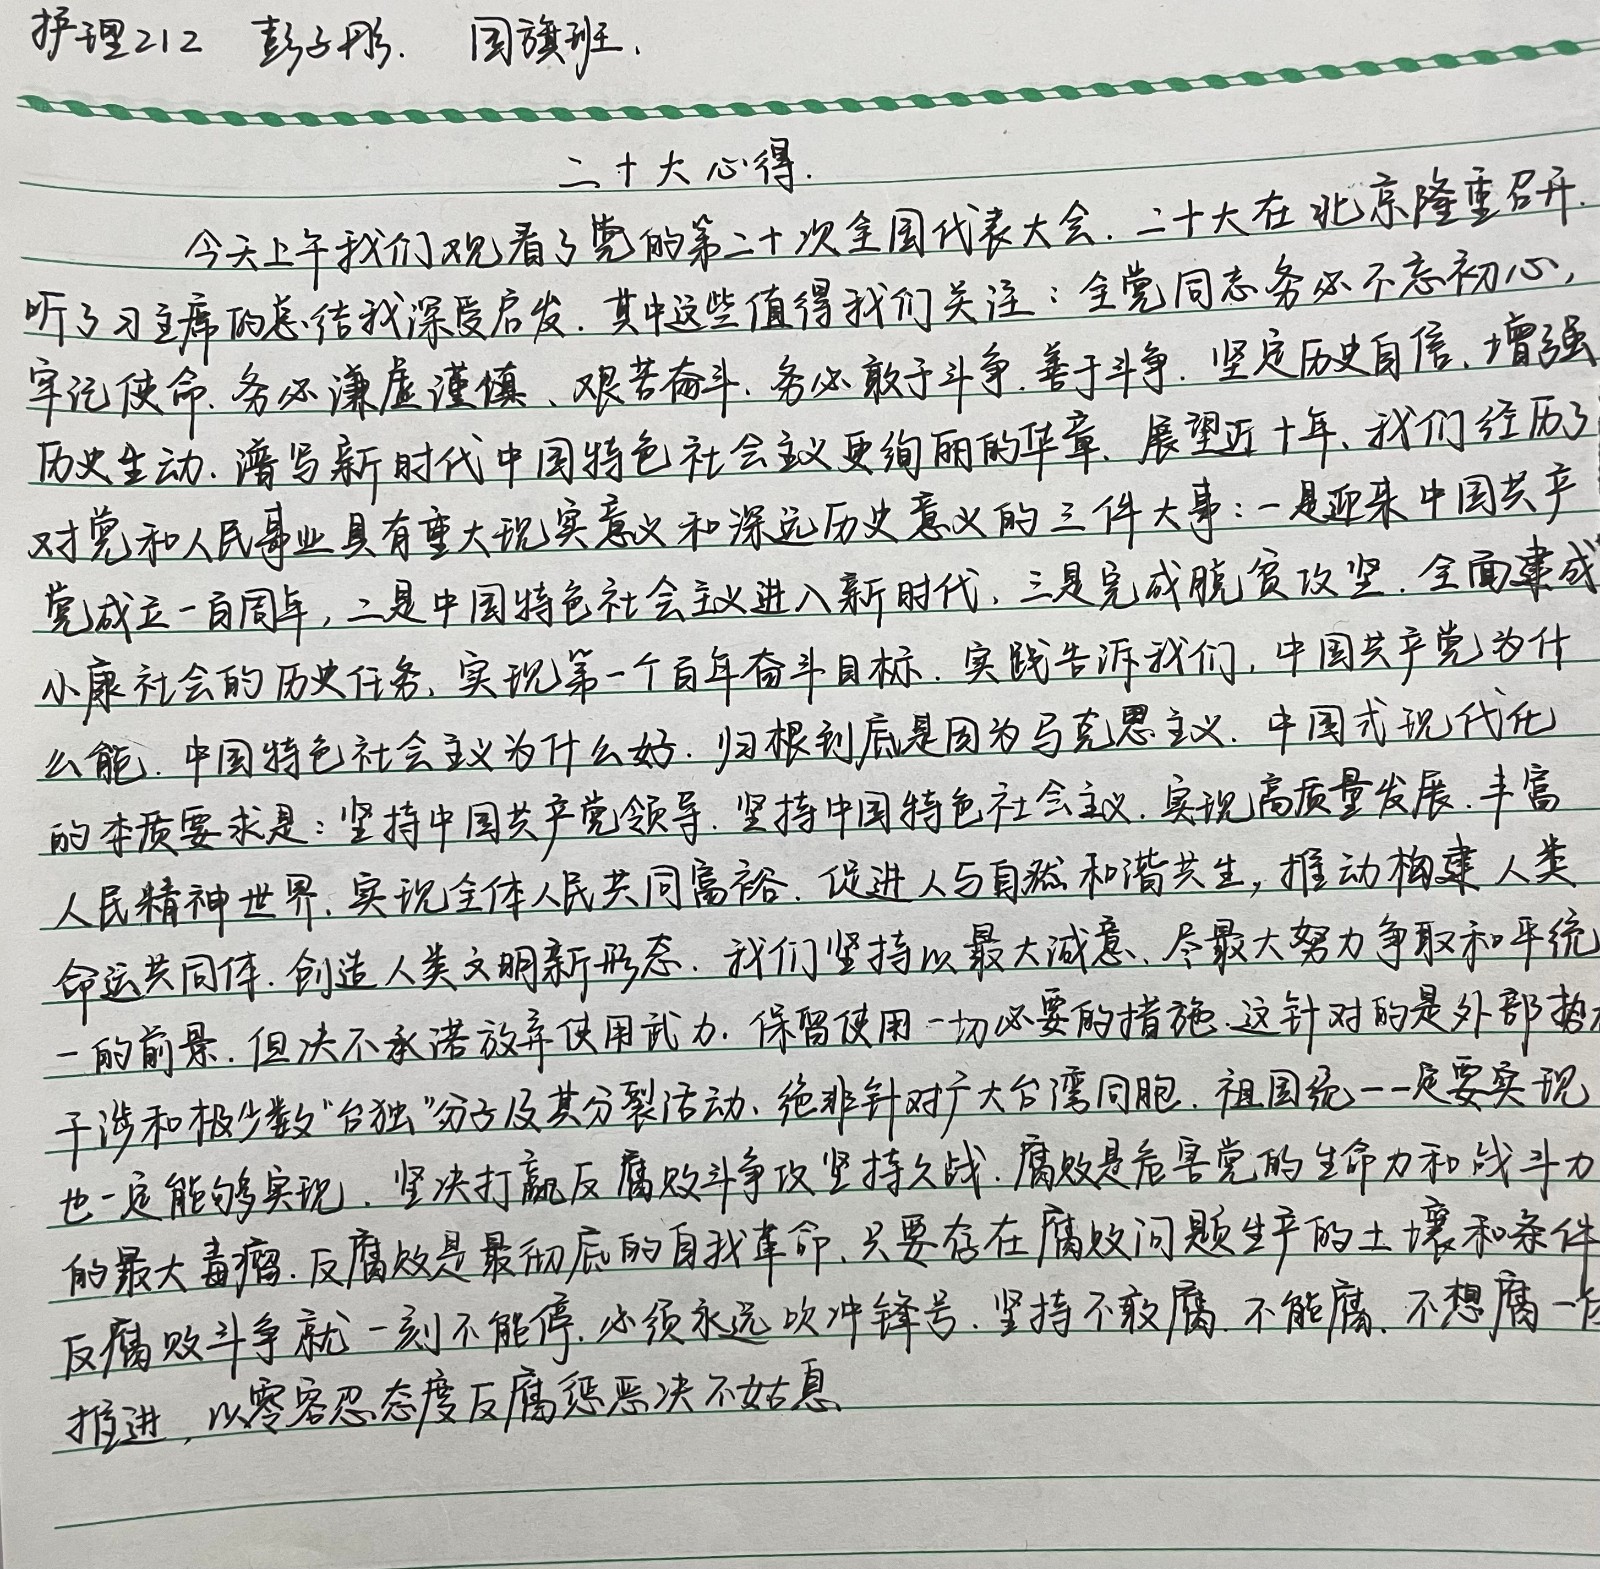 护理212 彭子彤. 国旗班.
二十大心得.
今天上午我们观看了党的第二十次全国代表大会. 二十大在北京隆重召开.
听了习主席的总结我深受启发. 其中这些值得我们关注：全党同志务必不忘初心，
牢记使命. 务必谦虚谨慎、艰苦奋斗. 务必敢于斗争. 善于斗争. 坚定历史自信、增强
历史生动. 谱写新时代中国特色社会主义更绚丽的华章. 展望近十年、我们经历了
对党和人民事业具有重大现实意义和深远历史意义的三件大事：一是迎来中国共产
党成立一百周年，二是中国特色社会主义进入新时代，三是完成脱贫攻坚. 全面建成
小康社会的历史任务，实现第一个百年奋斗目标. 实践告诉我们，中国共产党为什
么能. 中国特色社会主义为什么好. 归根到底是因为马克思主义. 中国式现代化
的本质要求是：坚持中国共产党领导. 坚持中国特色社会主义. 实现高质量发展. 丰富
人民精神世界. 实现全体人民共同富裕. 促进人与自然和谐共生，推动构建人类
命运共同体. 创造人类文明新形态. 我们坚持以最大诚意、尽最大努力争取和平统
一的前景. 但决不承诺放弃使用武力. 保留使用一切必要的措施. 这针对的是外部势
干涉和极少数"台独"分子及其分裂活动、绝非针对广大台湾同胞. 祖国统一一定要实现
也一定能够实现. 坚决打赢反腐败斗争攻坚持久战. 腐败是危害党的生命力和战斗力
的最大毒瘤. 反腐败是最彻底的自我革命. 只要存在腐败问题生产的土壤和条件
反腐败斗争就一刻不能停. 必须永远吹冲锋号. 坚持不敢腐. 不能腐. 不想腐一
推进，以零容忍态度反腐惩恶决不姑息